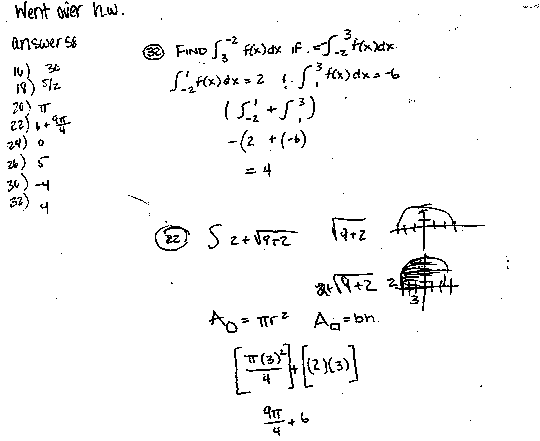 Went over h.w.
answers
16) 36
18) 5/2
20) π
22) 6 + 9π/4
24) 0
26) 5
30) -4
32) 4
(32) FIND ∫₃⁻² f(x)dx if . = ∫₋₂³ f(x)dx.
∫₋₂¹ f(x)dx = 2 & ∫₁³ f(x)dx = -6
(∫₋₂¹ + ∫₁³)
-(2 + (-6)
= 4
(22) ∫ 2+√9-2 √9+2
2+√9+2 2
3
A○ = πr² A□ = bh
[π(3)²/4] + [(2)(3)]
9π/4 + 6